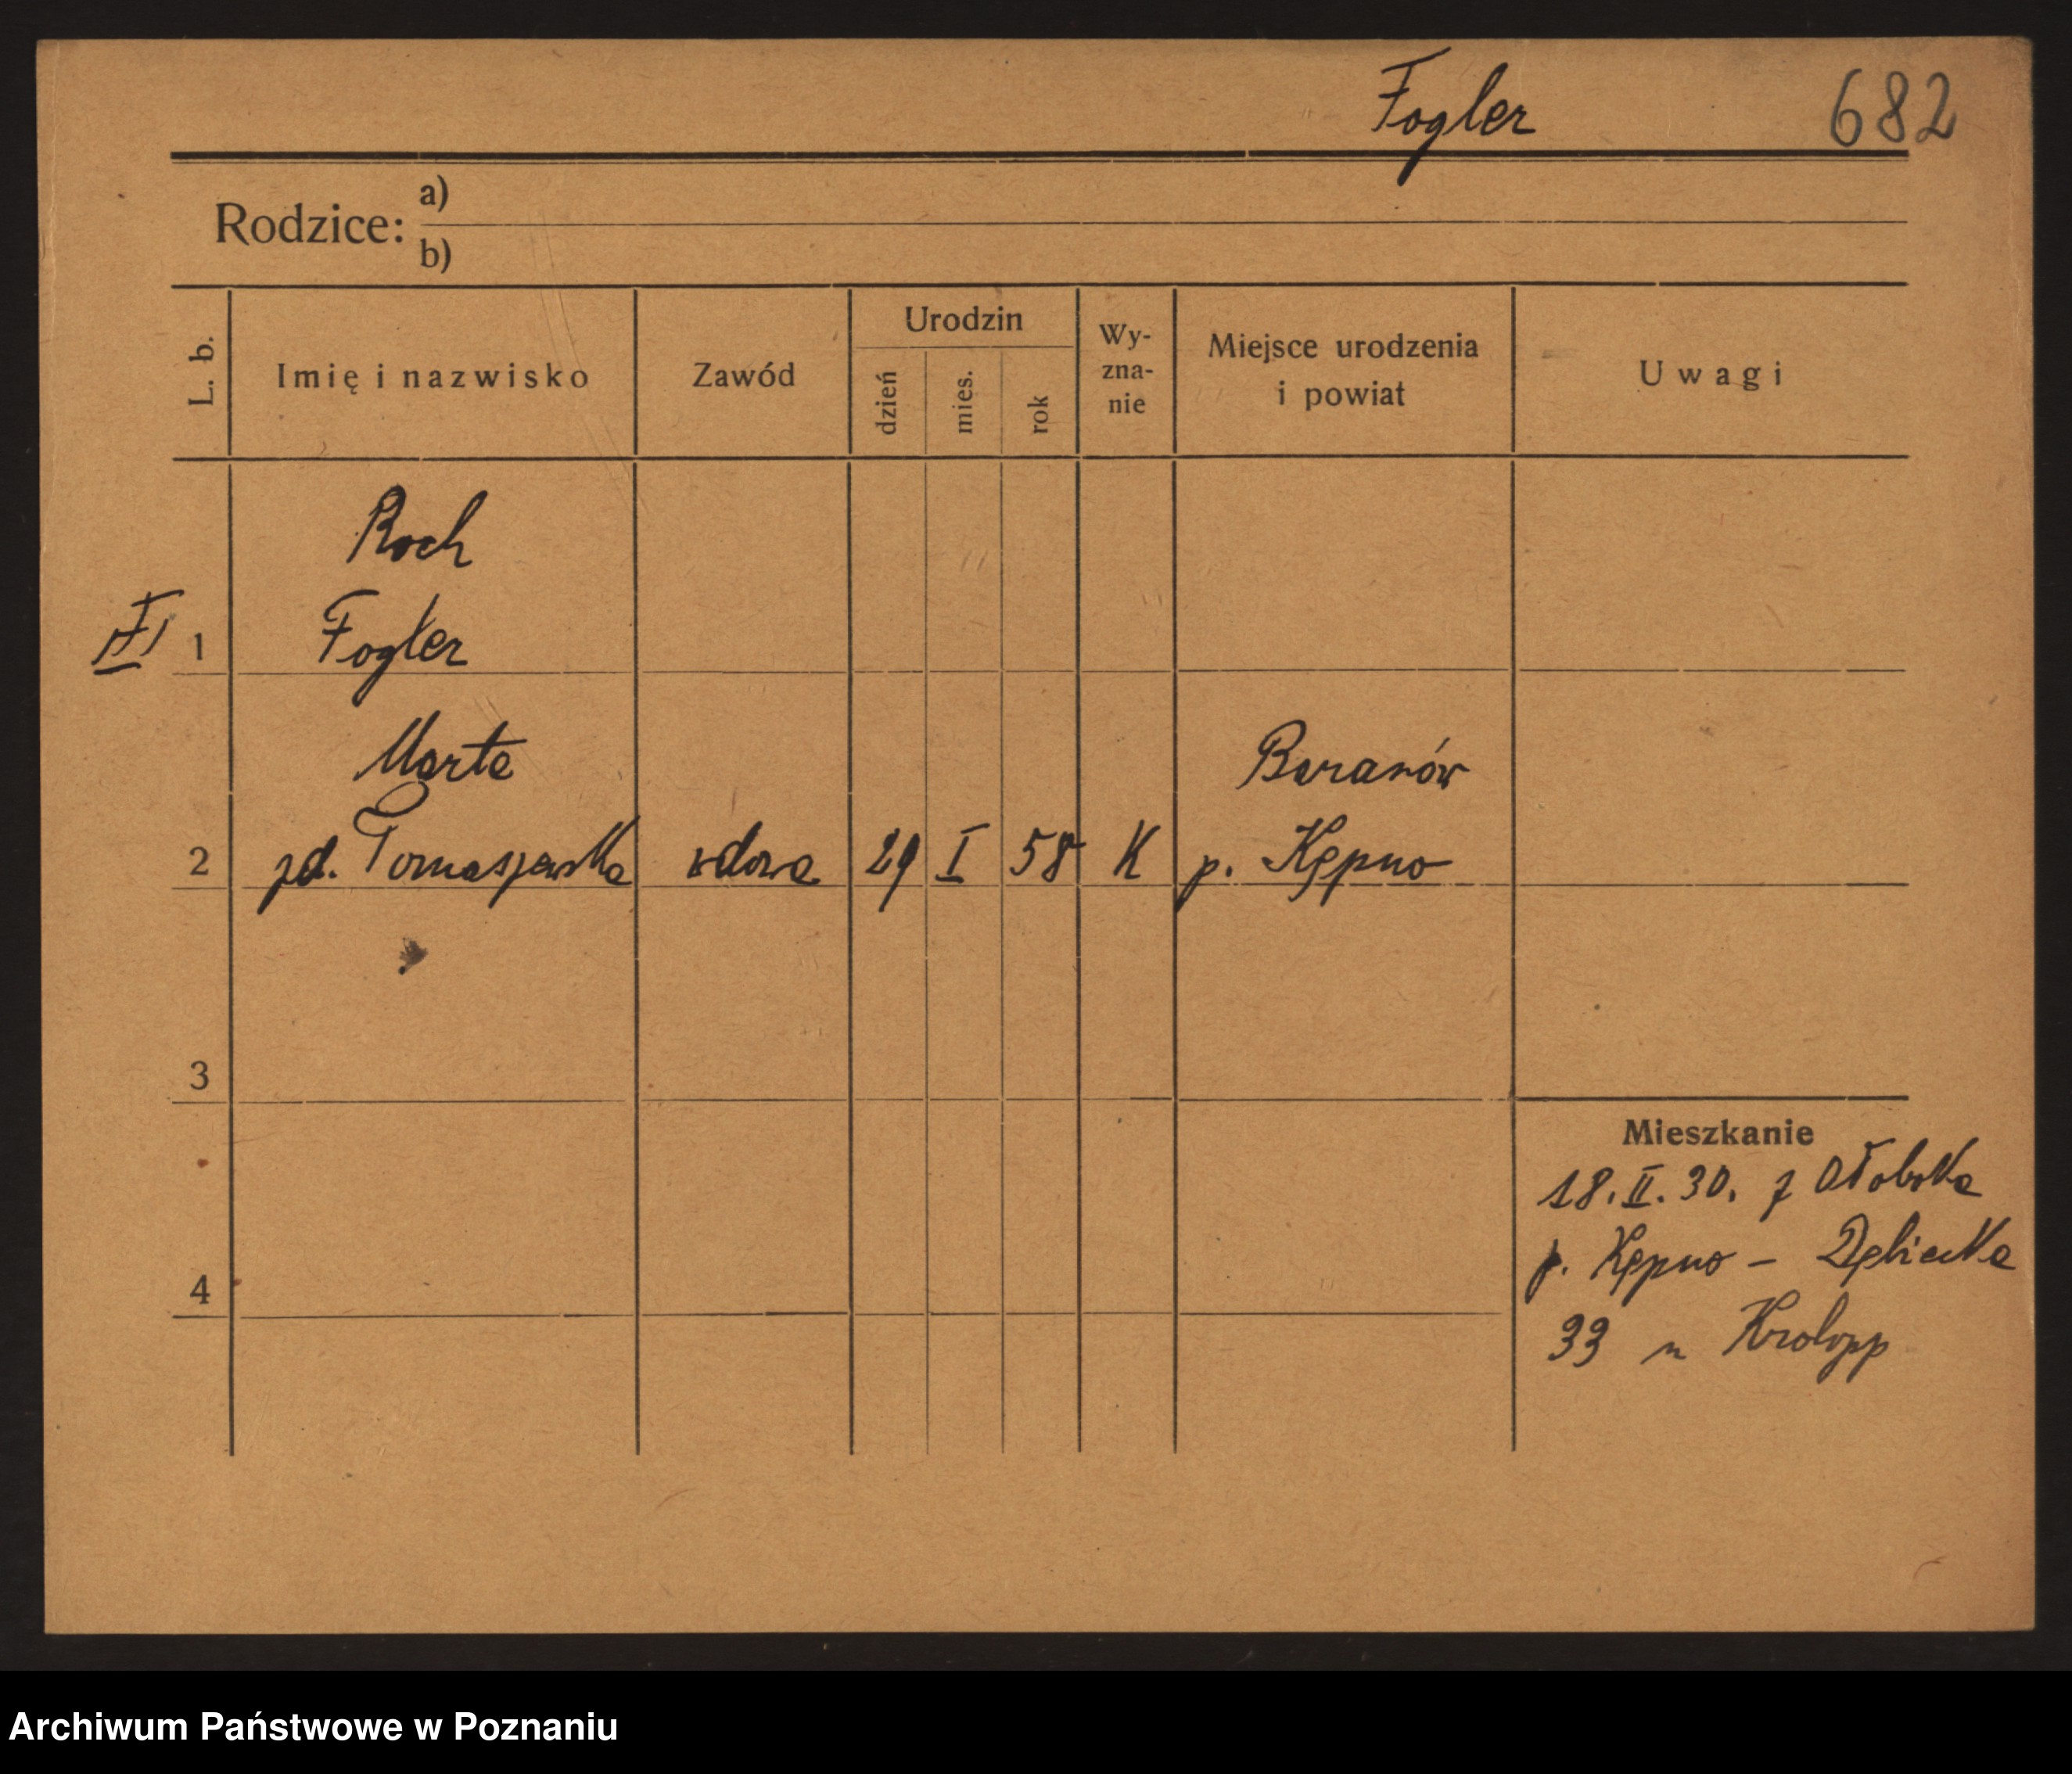 Fogler 682
Rodzice: a)
b)
L. b. Imię i nazwisko Zawód Urodzin dzień mies. rok Wy-zna-nie Miejsce urodzenia i powiat Uwagi
Roch
1 Fogler
Marta Baranów
2 zd. Tomaszewska wdowa 29 I 58 K p. Kępno
3
4
Mieszkanie
18.II.30. z Ołoboka
p. Kępno - Dębiecka
33 u Krolopp
Archiwum Państwowe w Poznaniu